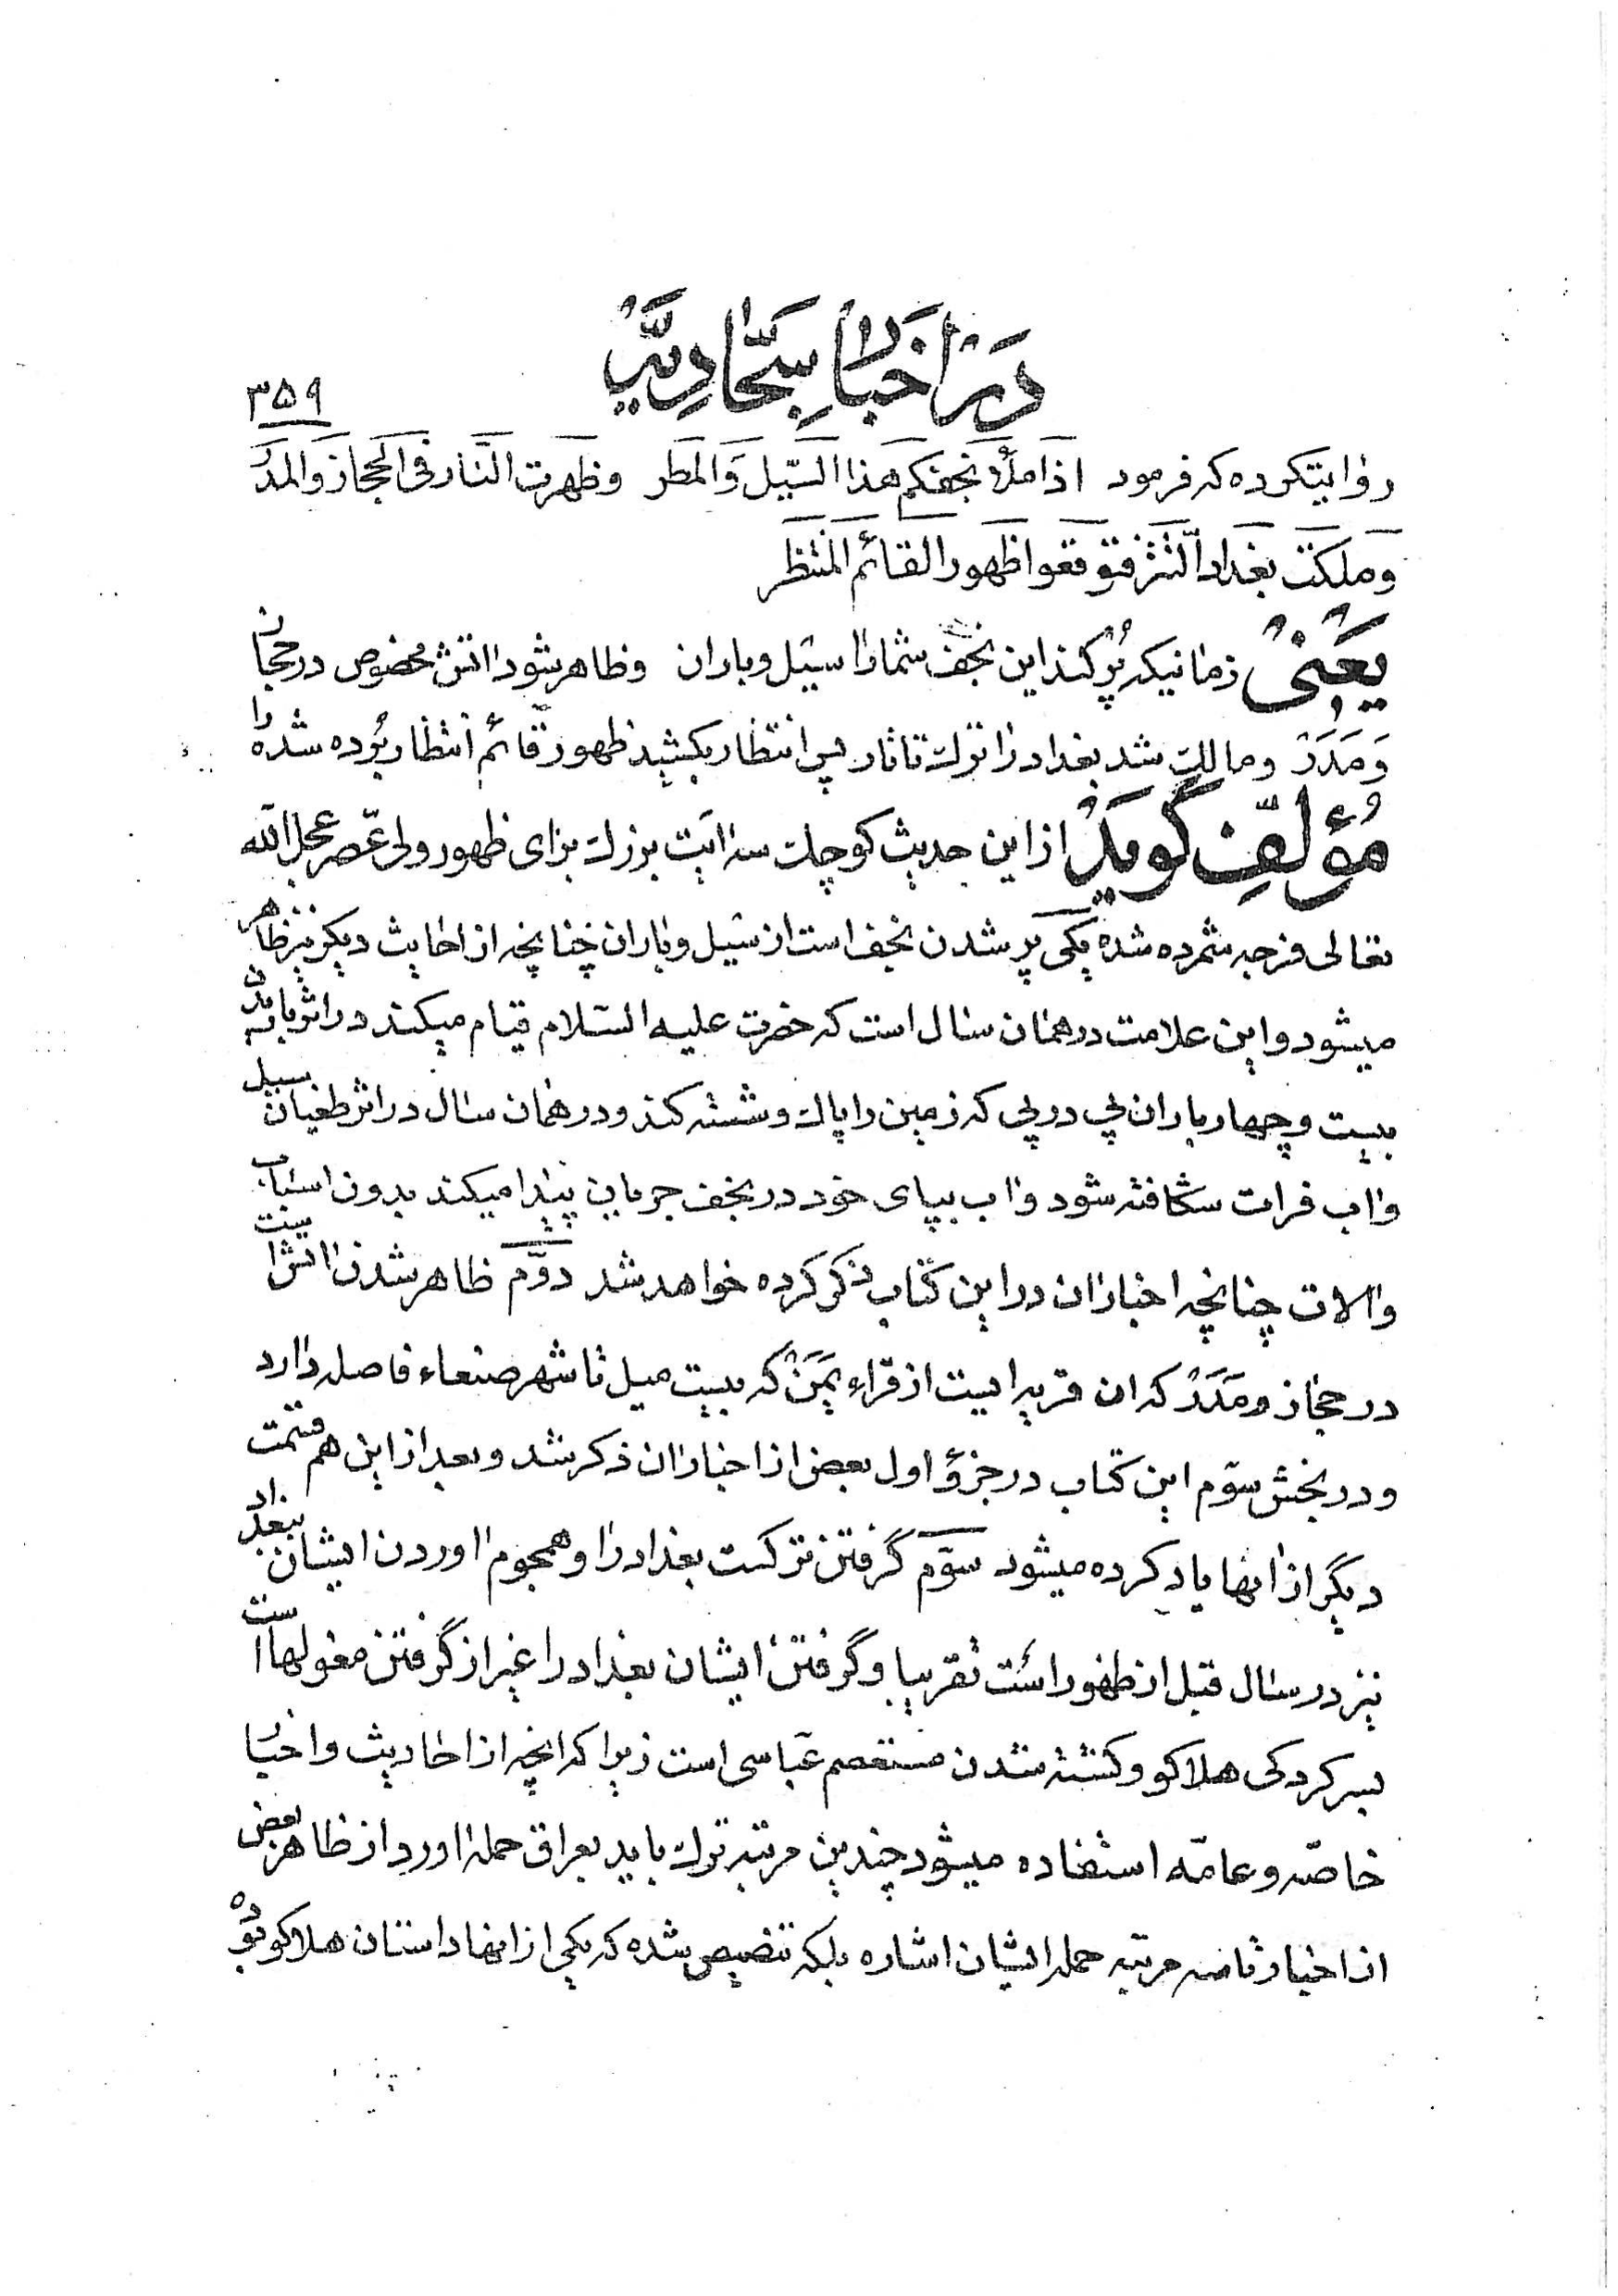 در اخبار سجّادیّه
۳۵۹
روایتکرده که فرمود اذا ملأ نجفکم هذا السّیل والمطر وظهرت النّار فی الحجاز والمدر
وملکت بغداد التّتر فتوقعوا ظهور القائم المنتظر
یعنی زمانیکه پُر کند این نجف شما را سیل و باران وظاهر شود اتش مخصوص در حجاز
وَمَدَر ومالک شد بغداد را ترک تاتار پس انتظار بکشید ظهور قائم انتظار برده شده را
مؤلّف گوید از این حدیث کوچک سه ایت بزرک برای ظهور ولی عصر عجل الله
تعالی فرجه شمرده شده یکی پر شدن نجف است از سیل و باران چنانچه از احادیث دیکر نیز ظاهر
میشود و این علامت در همان سال است که حضرت علیه السّلام قیام میکند در اثر باریدن
بیست و چهار باران پی در پی که زمین را پاک و شسته کند و در همان سال در اثر طغیان سیل
واب فرات شکافته شود واب بپای خود در نجف جریان پیدا میکند بدون اسباب
والات چنانچه اخبار ان در این کتاب ذکر کرده خواهد شد دوّم ظاهر شدن اتش است
در حجاز ومَدَر که ان قریه ایست از قراء یَمَن که بیست میل تا شهر صنعاء فاصله دارد
ودر بخش سوّم این کتاب در جزؤ اول بعض از اخبار ان ذکر شد و بعد از این هم قسمت
دیگر از انها یاد کرده میشود سوّم گرفتن ترکست بغداد را وهجوم اوردن ایشان ببغداد
نیز در سال قبل از ظهور است تقریبا و گرفتن ایشان بغداد را غیر از گرفتن مغولها است
بسرکردکی هلاکو و کشته شدن مستعصم عباسی است زیرا که انچه از احادیث و اخبار
خاصّه و عامّه استفاده میشود چندین مرتبه ترک باید بعراق حمله اورد از ظاهر بعض
از اخبار تا سه مرتبه حمله ایشان اشاره بلکه تنصیص شده که یکی از انها داستان هلاکو بوده